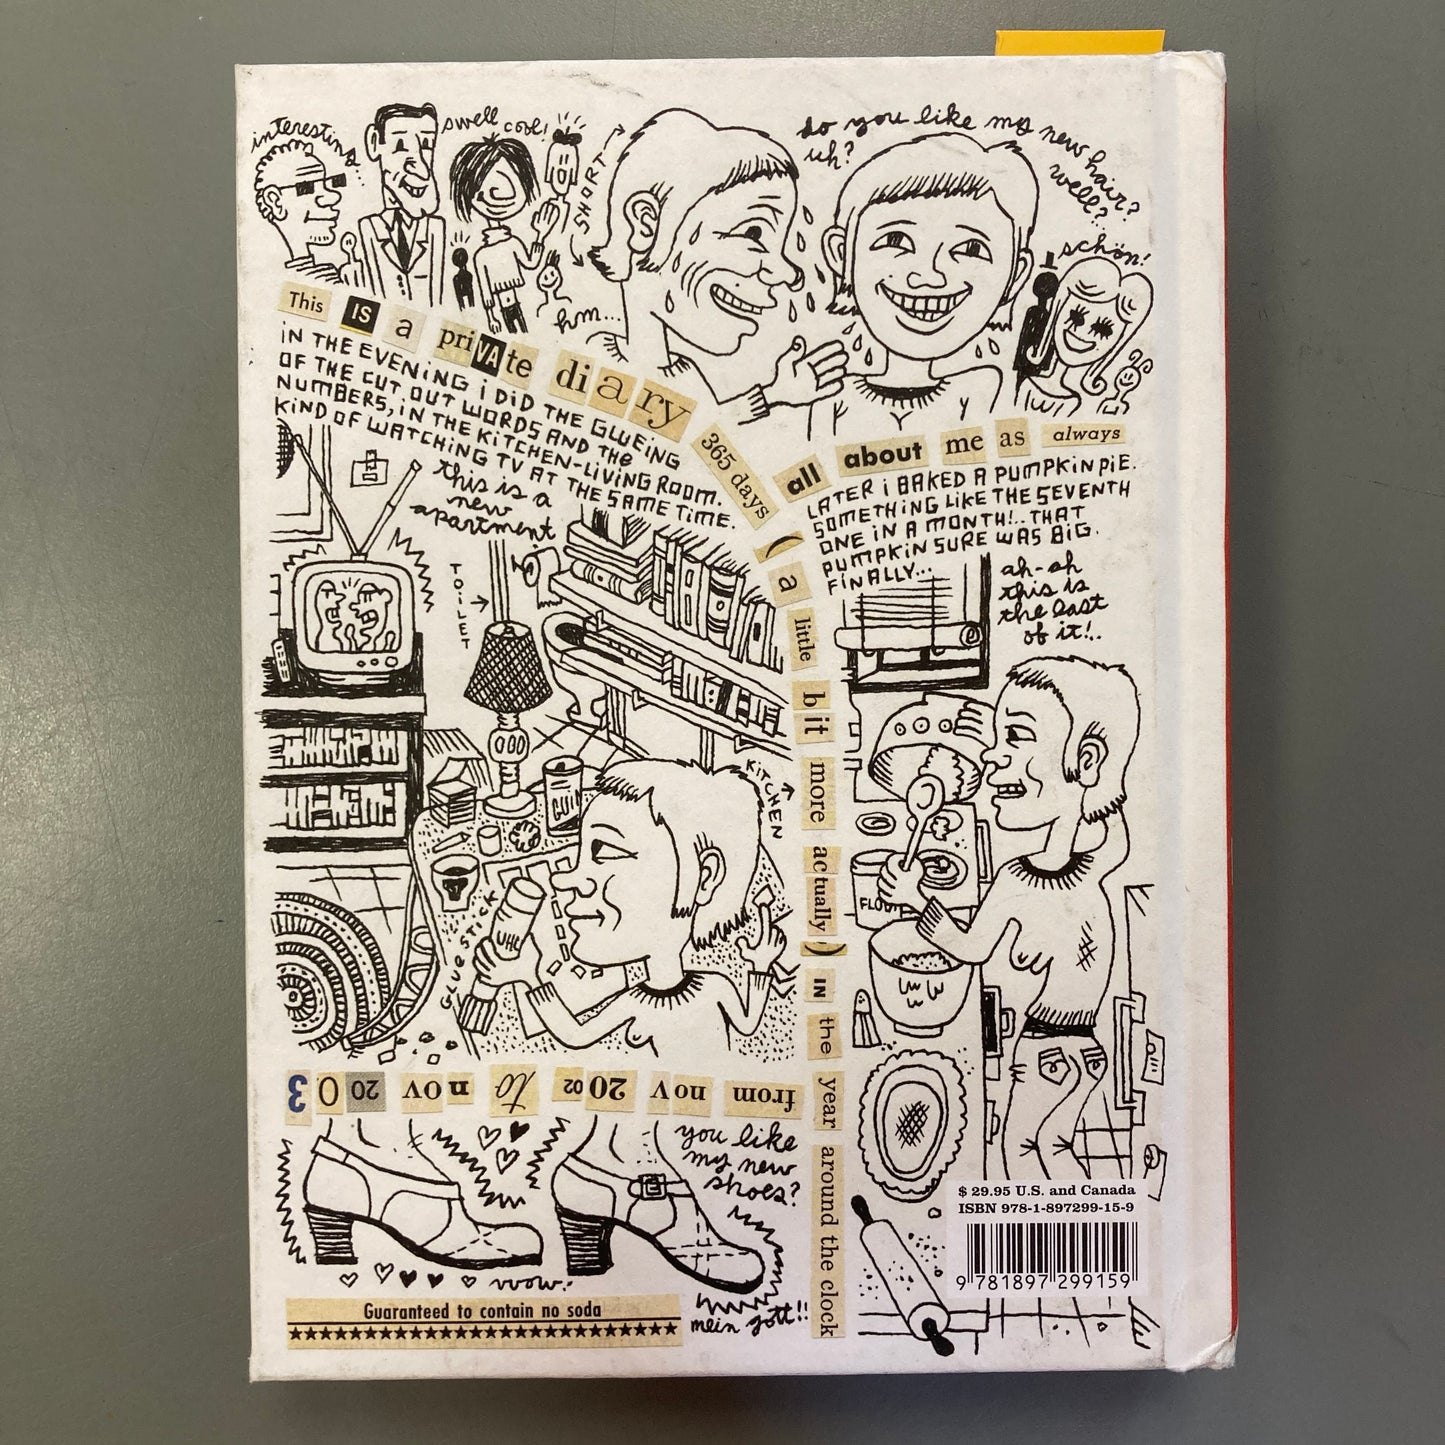 interesting...
swell
cool!
SHORT
do you like my new hair?
uh?
well?
schön!
hm...
This IS a priVAte diary 365 days ( a little bit more actually ) IN the year around the clock
iN THE EVENiNG i DiD THE GLWEiNG
OF THE CUT OUT WORDS AND THE
NUMBERS, iN THE KiTCHEN-LiViNG ROOM.
KiND OF WATCHiNG TV AT THE SAME TiME.
this is a
new
apartment
all about me as always
LATER i BAKED A PUMPKiN PiE.
SOMETHiNG LiKE THE SEVENTH
ONE iN A MONTH!.. THAT
PUMPKiN SURE WAS BiG.
FiNALLY...
ah-ah
this is
the last
of it!..
TOiLET
KiTCHEN
GLUE STiCK
UHU
FLOUR
from nov 2002 to nov 2003
you like
my new
shoes?
wow!
mein gott!!
Guaranteed to contain no soda
$ 29.95 U.S. and Canada
ISBN 978-1-897299-15-9
9 781897 299159